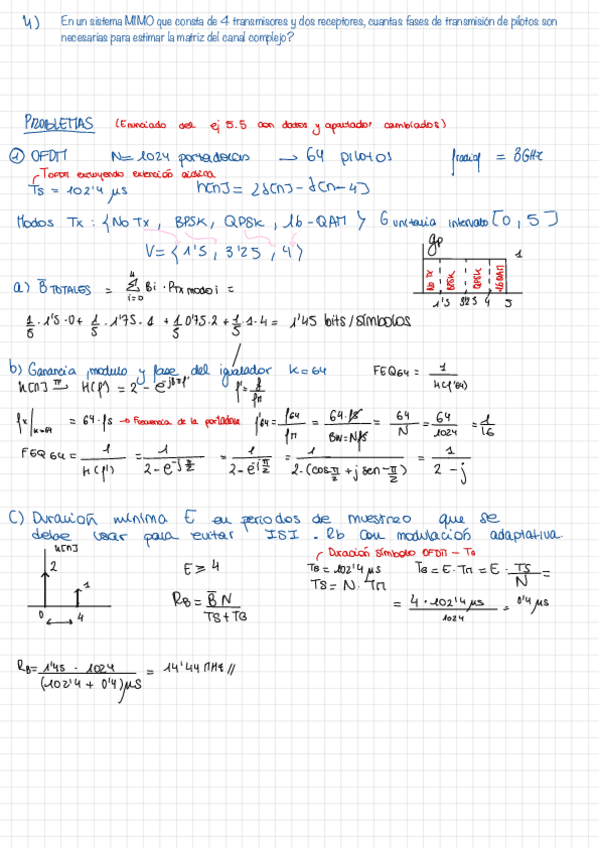 4) En un sistema MIMO que consta de 4 transmisores y dos receptores, cuantas fases de transmisión de pilotos son
necesarias para estimar la matriz del canal complejo?
PROBLEMAS (Enunciado del ej 5.5 con datos y apartados cambiados)
① OFDM N = 1024 portadoras → 64 pilotos fradiof = 3GHz
Tofdm excluyendo extensión cíclica
Ts = 102'4 μs h[n] = 2δ[n] - δ[n-4]
Modos Tx : {No Tx, BPSK, QPSK, 16-QAM} G unitaria intervalo [0, 5]
V = {1'5, 3'25, 4}
gp
1
No Tx BPSK QPSK 16QAM
1'5 3'25 4 5
a) B̄ TOTALES = Σ Bi · PTX modo i =
i=0
1/5 · 1'5 · 0 + 1/5 · 1'75 · 1 + 1/5 0'75 · 2 + 1/5 · 1 · 4 = 1'45 bits/símbolos
b) Ganancia, modulo y fase del igualador k=64 FEQ64 = 1/H(f'64)
f' = f/fm
fx|k=64 = 64 · fs → Frecuencia de la portadora f'64 = f64/fm = 64·fs/BW=N·fs = 64/N = 64/1024 = 1/16
FEQ64 = 1/H(f') = 1/2-e^-jπ/2 = 1/2-e^jπ/2 = 1/2-(cos-π/2 + j sen-π/2) = 1/2-j
C) Duración mínima E en periodos de muestreo que se
debe usar para evitar ISI. Rb con modulación adaptativa
h[n]
2
1
0 4
E ≥ 4
RB = B̄ N/TS+TG
Duración símbolo OFDM - TG
TS = 102'4 μs
TS = N · Tm
TG = E · Tm = E · TS/N =
= 4 · 102'4 μs/1024 = 0'4 μs
RB = 1'45 · 1024/(102'4 + 0'4) μs = 14'44 MHz //